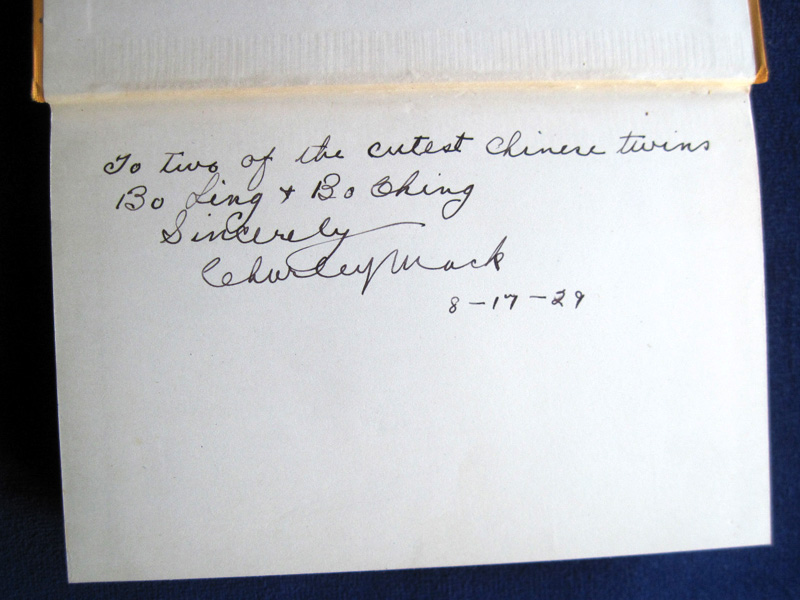 To two of the cutest Chinese twins
Bo Ling + Bo Ching
Sincerely
Charley Mack
8-17-29